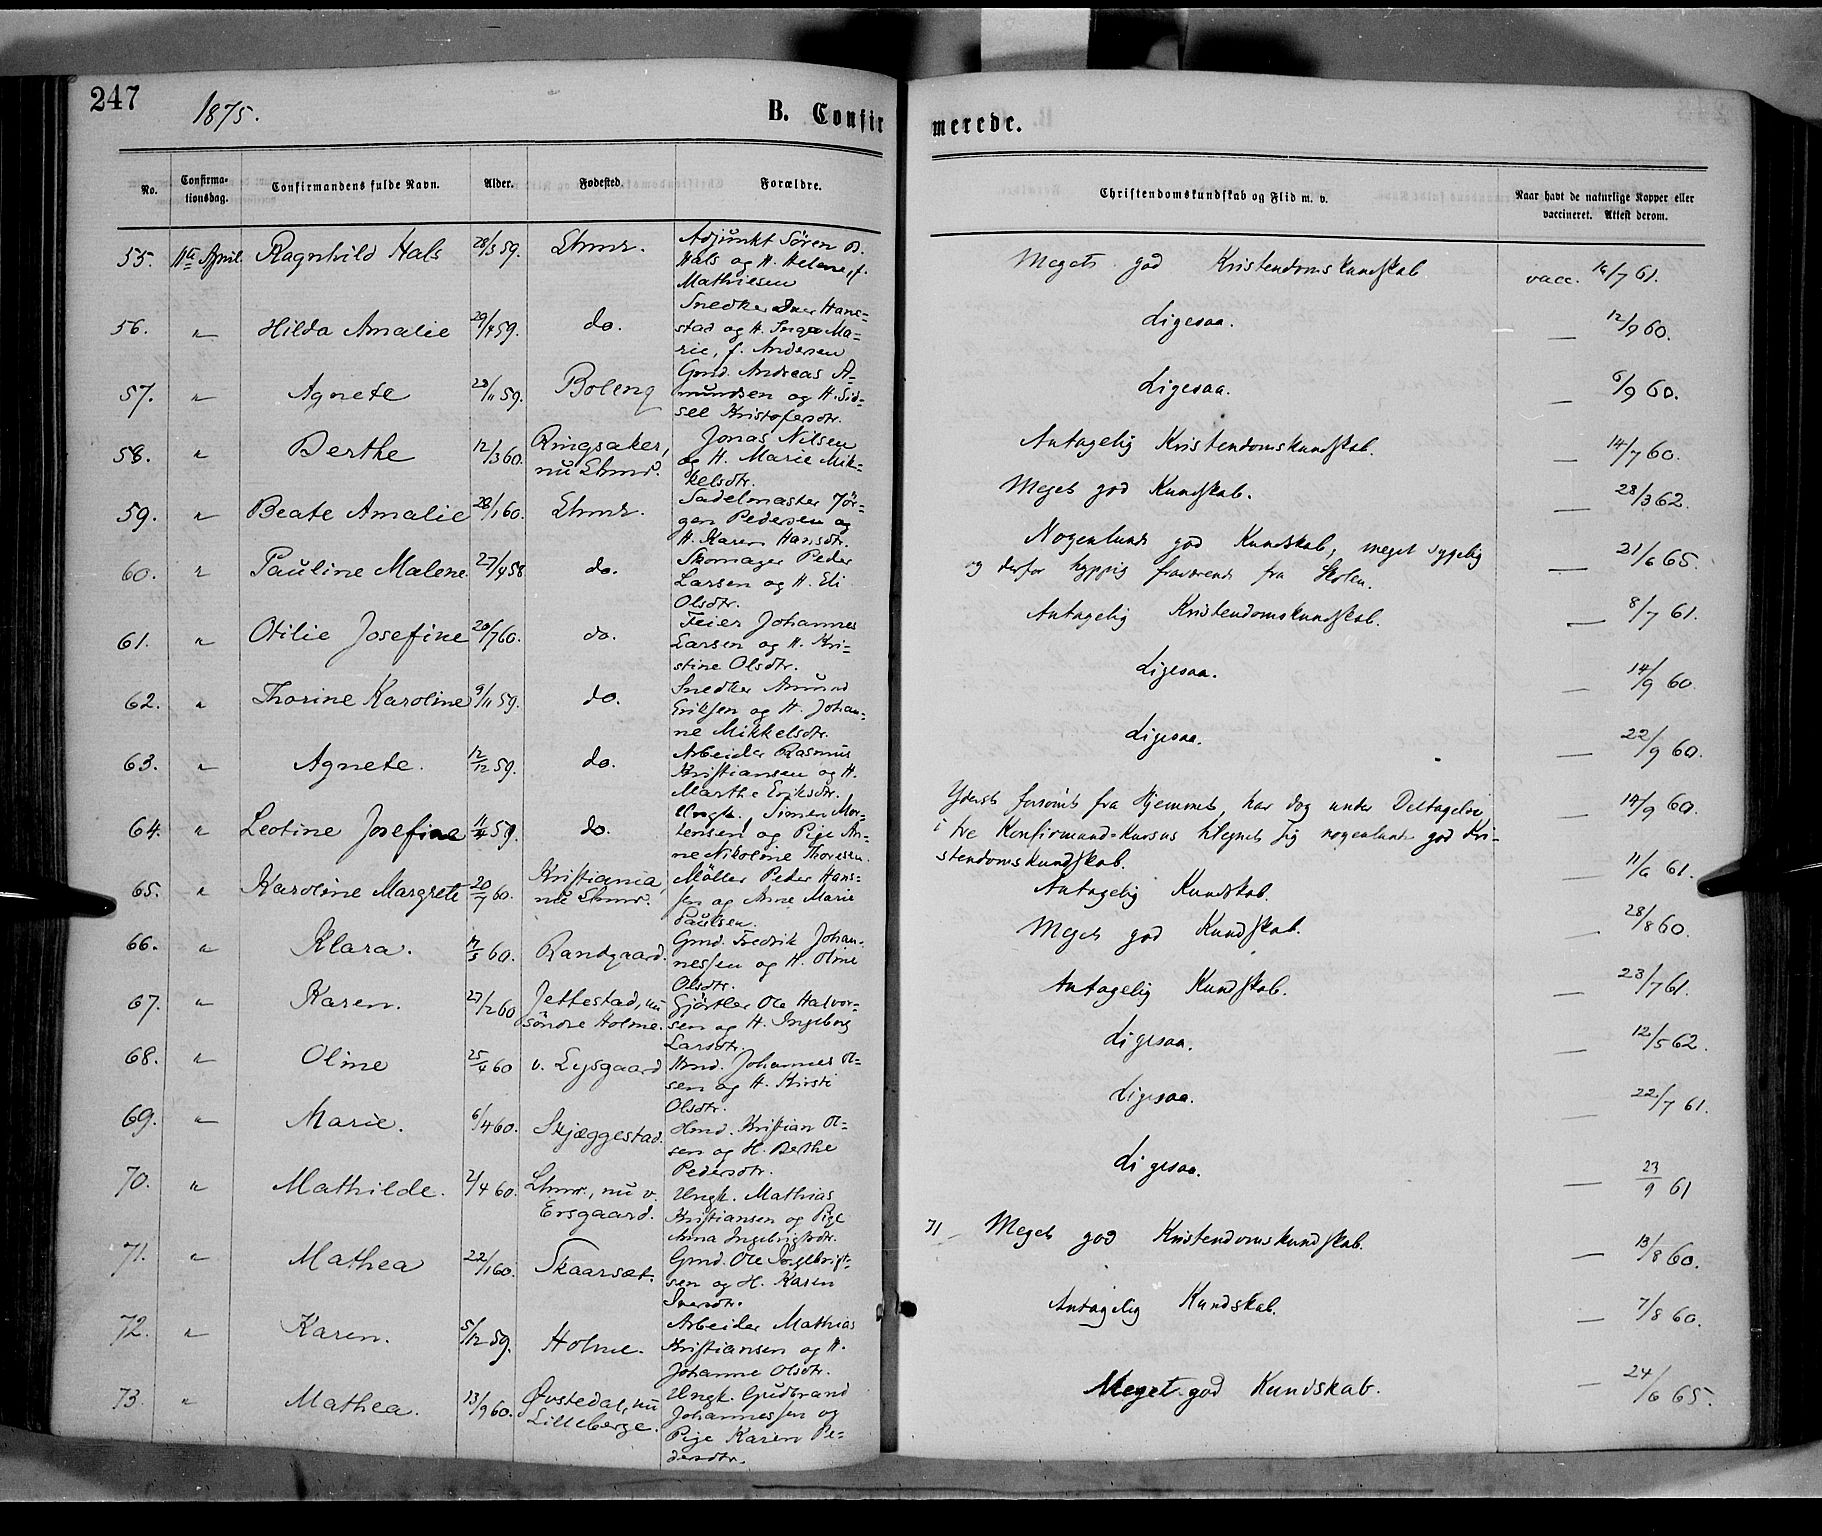 247
1875.
B. Confirmerede.
No. Confirmationsdag. Confirmandens fulde Navn. Alder. Fødested. Forældre. Christendomskundskab og Flid m. v. Naar havt de naturlige Kopper eller vaccineret. Attest derom.
55. 11te April Ragnhild Hals 28/3 59. Lhmr. Adjunkt Sören B.
Hals og H. Helene, f.
Mathiesen
Megets god Kristendomskundskab vacc. 16/7 61.
56. " Hilda Amalie 29/4 59. do. Snedker Iver Hans-
stad og H. Inga Ma-
rie, f. Andersen
Ligesaa. — 12/9 60.
57. " Agnete 23/11 59. Boleng Gmd. Andreas A-
mundsen og H. Sid-
sel Kristofersdtr.
Ligesaa. — 6/9 60.
58. " Berthe 12/3 60. Ringsaker,
nu Lhmr. Jonas Nilsen
og H. Marie Mik-
kelsdtr.
Antagelig Kristendomskundskab. — 14/7 60.
59. " Beate Amalie 28/1 60. Lhmr. Sadelmaster Jör-
gen Pedersen og
H. Karen Hansdtr.
Meget god Kundskab. — 28/3 62.
60. " Pauline Malene 27/4 58 do. Skomager Peder
Larsen og H. Eli
Olsdtr.
Nogenlunde god Kundskab, meget sygelig
og derfor hyppig fraværende fra Skolen. — 21/6 65.
61. " Otilie Josefine 20/7 60. do. Feier Johannes
Larsen og H. Kri-
stine Olsdtr.
Antagelig Kristendomskundskab. — 8/7 61.
62. " Thorine Karoline 9/11 59. do. Snedker Amund
Eriksen og H. Johan-
ne Mikkelsdtr.
Ligesaa. — 14/9 60.
63. " Agnete. 12/12 59. do. Arbeider Rasmus
Kristiansen og H.
Marthe Eriksdtr.
Ligesaa. — 22/9 60.
64. " Leotine Josefine 11/4 59. do. Ungk. Simen Mor-
tensen og Pige An-
ne Nikoline Thoresen.
Yderst forsömt fra Hjemmet, har dog under Deltagelse
i to Konfirmand-kursus tilegnet sig nogenlunde god Kri-
stendomskundskab. — 14/9 60.
65. " Karoline Margrete 20/7 60. Kristiania,
nu Lhmr. Möller Peder Hans-
sen og Anne Marie
Paulsen.
Antagelig Kundskab. — 11/6 61.
66. " Klara. 17/5 60. Randgaard. Gmd. Fredrik Johan-
nessen og H. Oline
Olsdtr.
Meget god Kundskab. 28/8 60.
67. " Karen. 27/2 60 Jettestad, nu
söndre Holme. Gjörtler Ole Halvor-
sen og H. Ingeborg
Larsdtr.
Antagelig Kundskab. — 23/7 61.
68. " Oline 25/4 60 v. Lysgaard Hmd. Johannes Ol-
sen og H. Kirsti
Olsdtr.
Ligesaa. — 12/5 62.
69. " Marie. 6/4 60. Skjæggestad. Hmd. Kristian Ol-
sen og H. Berthe
Pedersdtr.
Ligesaa. — 22/7 61.
70. " Mathilde. 2/4 60. Lhmr., nu v.
Ersgaard. Ungk. Mathias
Kristiansen og Pige
Anna Ingebrigtsdtr.
Ligesaa. — 23/9 61
71. " Mathea 22/1 60. Skaarsæt. Gmd. Ole Ingebrigt-
sen og H. Karen
Iversdtr.
71 — Meget god Kristendomskundskab. — 13/8 60.
72. " Karen. 5/12 59. Holme. Arbeider Mathias
Kristiansen og H.
Johanne Olsdtr.
Antagelig Kundskab. — 7/8 60.
73. " Mathea. 13/9 60. Övstedal, nu
Lilleberge. Ungk. Gudbrand
Johannessen og
Pige Karen Pe-
dersdtr.
Meget god Kundskab. — 24/6 65.